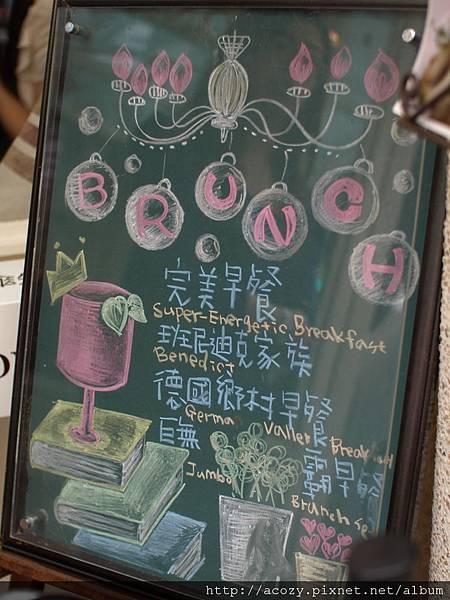 BRUNCH
完美早餐
Super-Energetic Breakfast
班尼迪克家族
Benedict
德國鄉村早餐
Germa Valley Breakfast
巨無霸早餐
Jumbo Brunch Se
http://acozy.pixnet.net/album